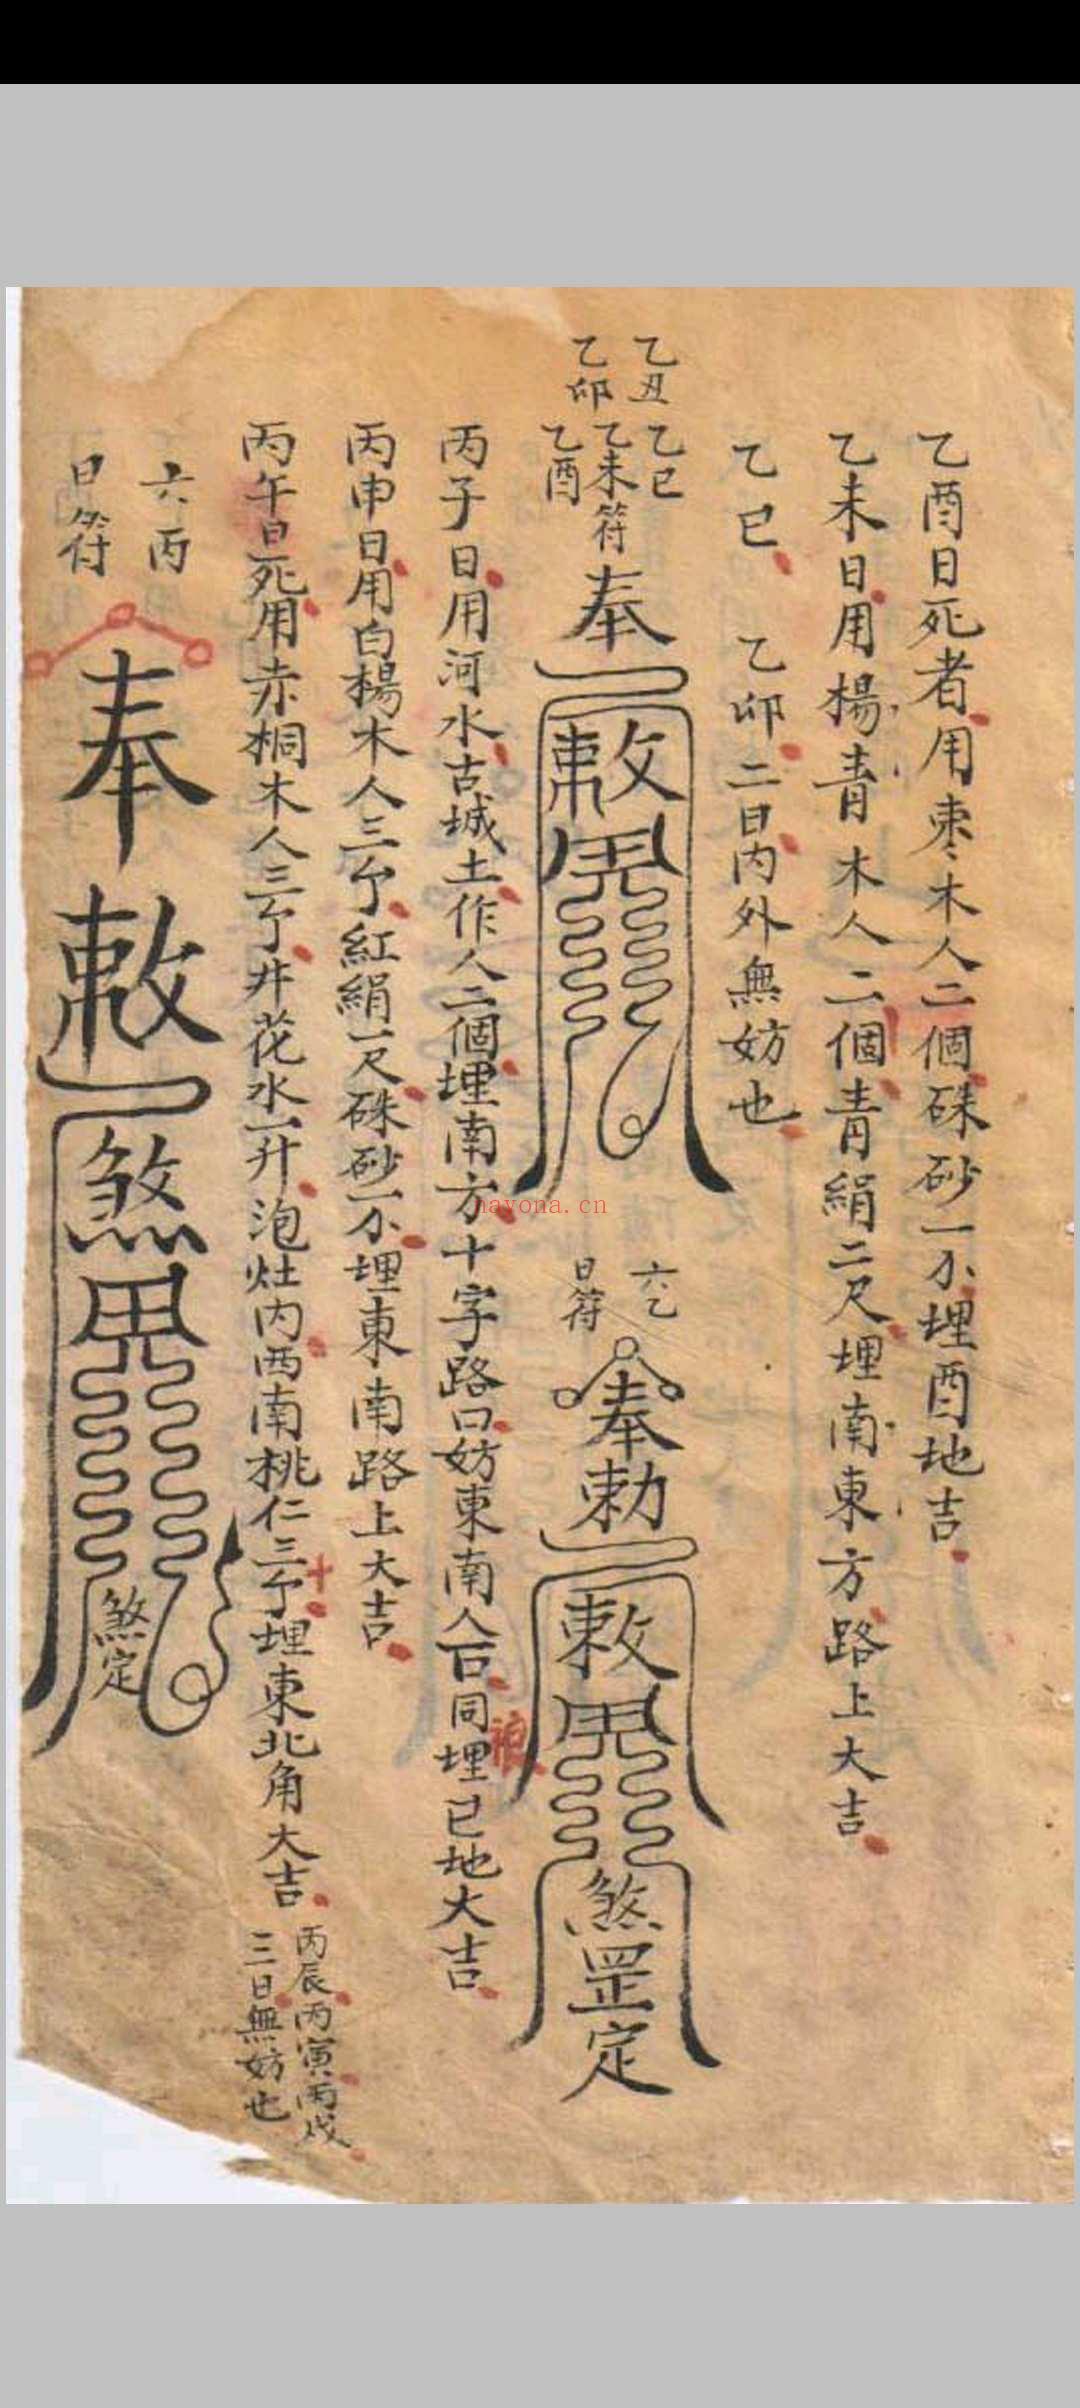 乙酉日死者用枣木人二個硃砂一分埋酉地吉
乙未日用楊青木人二個青絹二尺埋南東方路上大吉
乙巳 乙卯二日內外無妨也
乙丑
乙卯
乙巳
乙未符
乙酉
奉
敕
六乙
日符
奉勅
敕
煞罡定
丙子日用河水古城土作人二個埋南方十字路口妨東南人口同埋巳地大吉
丙申日用白楊木人三个紅絹一尺硃砂一分埋東南路上大吉
丙午日死用赤桐木人三个井花水一升泡灶内西南桃仁三个埋東北角大吉
十
丙辰丙寅丙戌
三日無妨也
六丙
日符
奉
敕
煞
煞定
nayona.cn